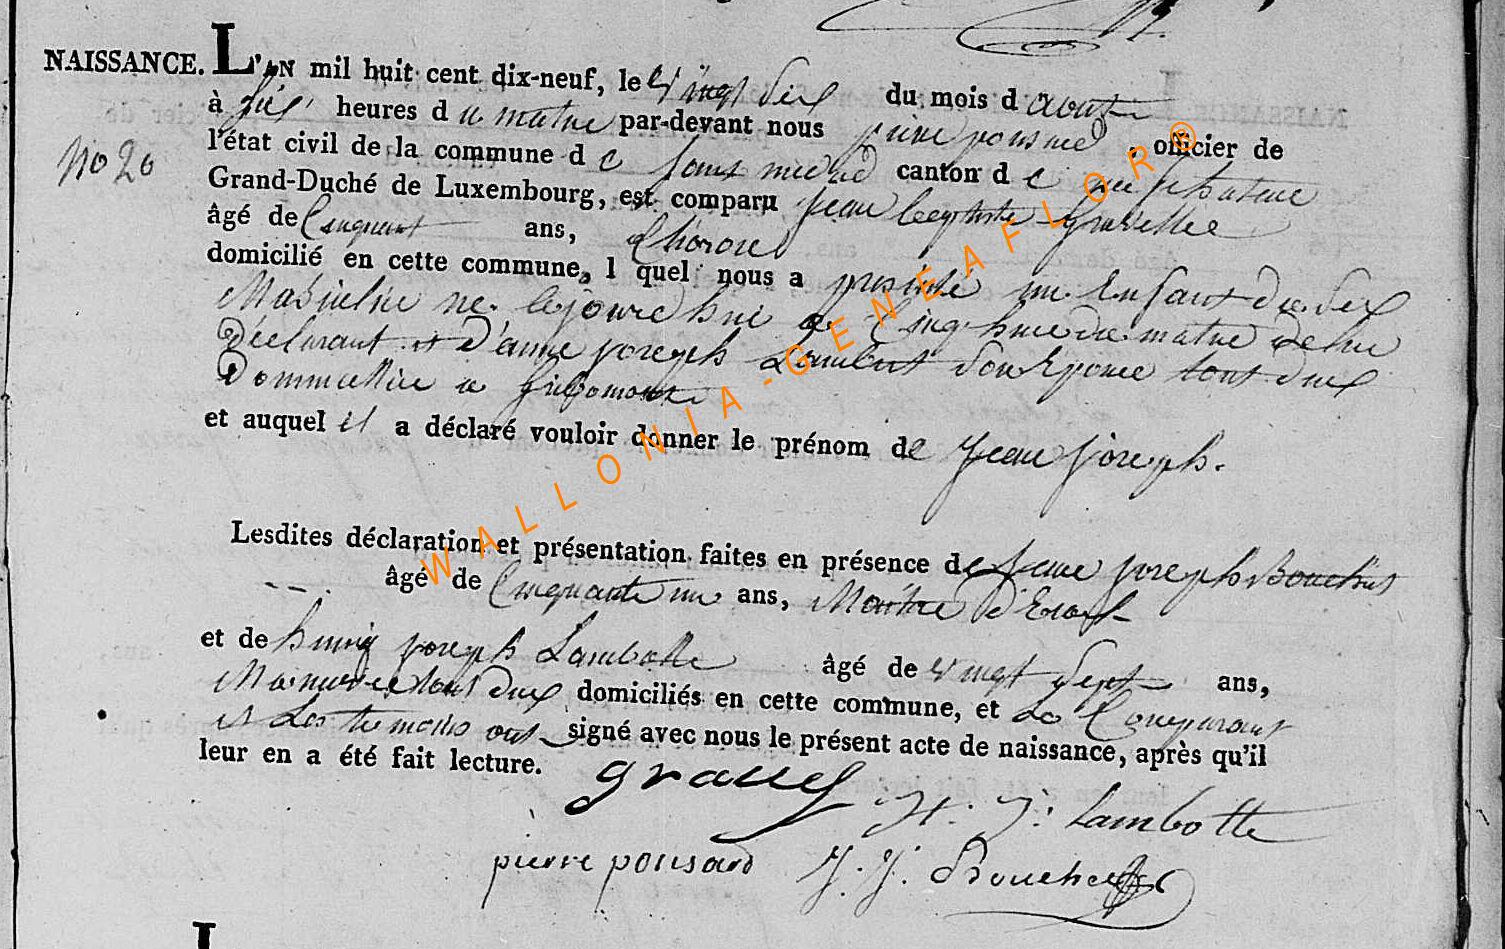 NAISSANCE. L'AN mil huit cent dix-neuf, le vingt six du mois d aout
à six heures d u matin par-devant nous pierre ponsard, officier de
No 20
l'état civil de la commune d e saint medard canton d e neufchateau
Grand-Duché de Luxembourg, est comparu Jean baptiste
âgé de Cinquant ans,
domicilié en cette commune, l quel nous a presenté un Enfant du sex
Masculin né lejourdhui a Cinq heure du matin de lui
Declarant et D'anne joseph Lambert son Epouse tout deux
Dommicillié a
et auquel il a déclaré vouloir donner le prénom de Jean joseph.
Lesdites déclaration et présentation faites en présence de Jean joseph
âgé de Cinquante un ans, Maitre d'Ecol
et de henry joseph Lambotte âgé de vingt sept ans,
tout deux domiciliés en cette commune, et Le Comparant
et Les temoins ont signé avec nous le présent acte de naissance, après qu'il
leur en a été fait lecture.
H. J. Lambotte
pierre ponsard J. J.
L
WALLONIA-GENEAFLOR®